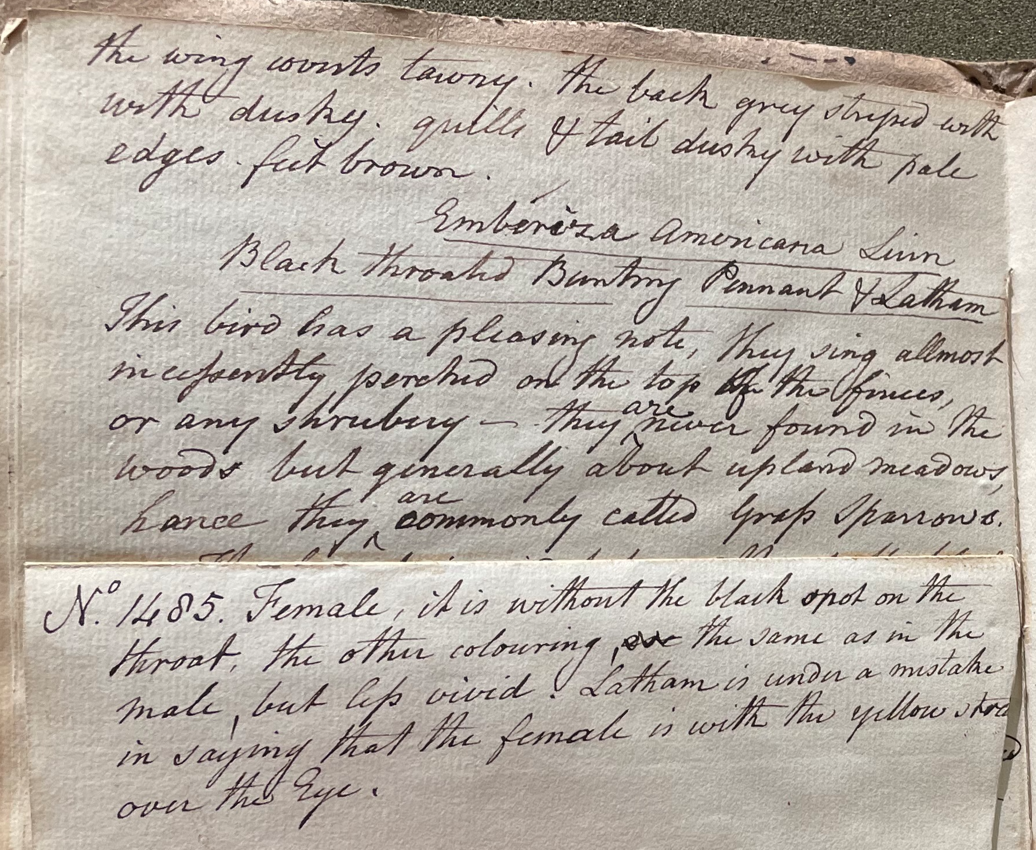 the wing coverts tawny. the back grey striped with
with dusky. quills & tail dusky with pale
edges. feet brown.
Emberiza Americana Linn
Black throated Bunting Pennant & Latham
This bird has a pleasing note, they sing allmost
incessently perched on the top of the fences,
or any shrubery — they are never found in the
woods but generally about upland meadows,
hance they are commonly called Grass Sparrows.
No. 1485. Female, it is without the black spot on the
throat. the other colouring, the same as in the
male, but less vivid. Latham is under a mistake
in saying that the female is with the yellow
over the Eye.